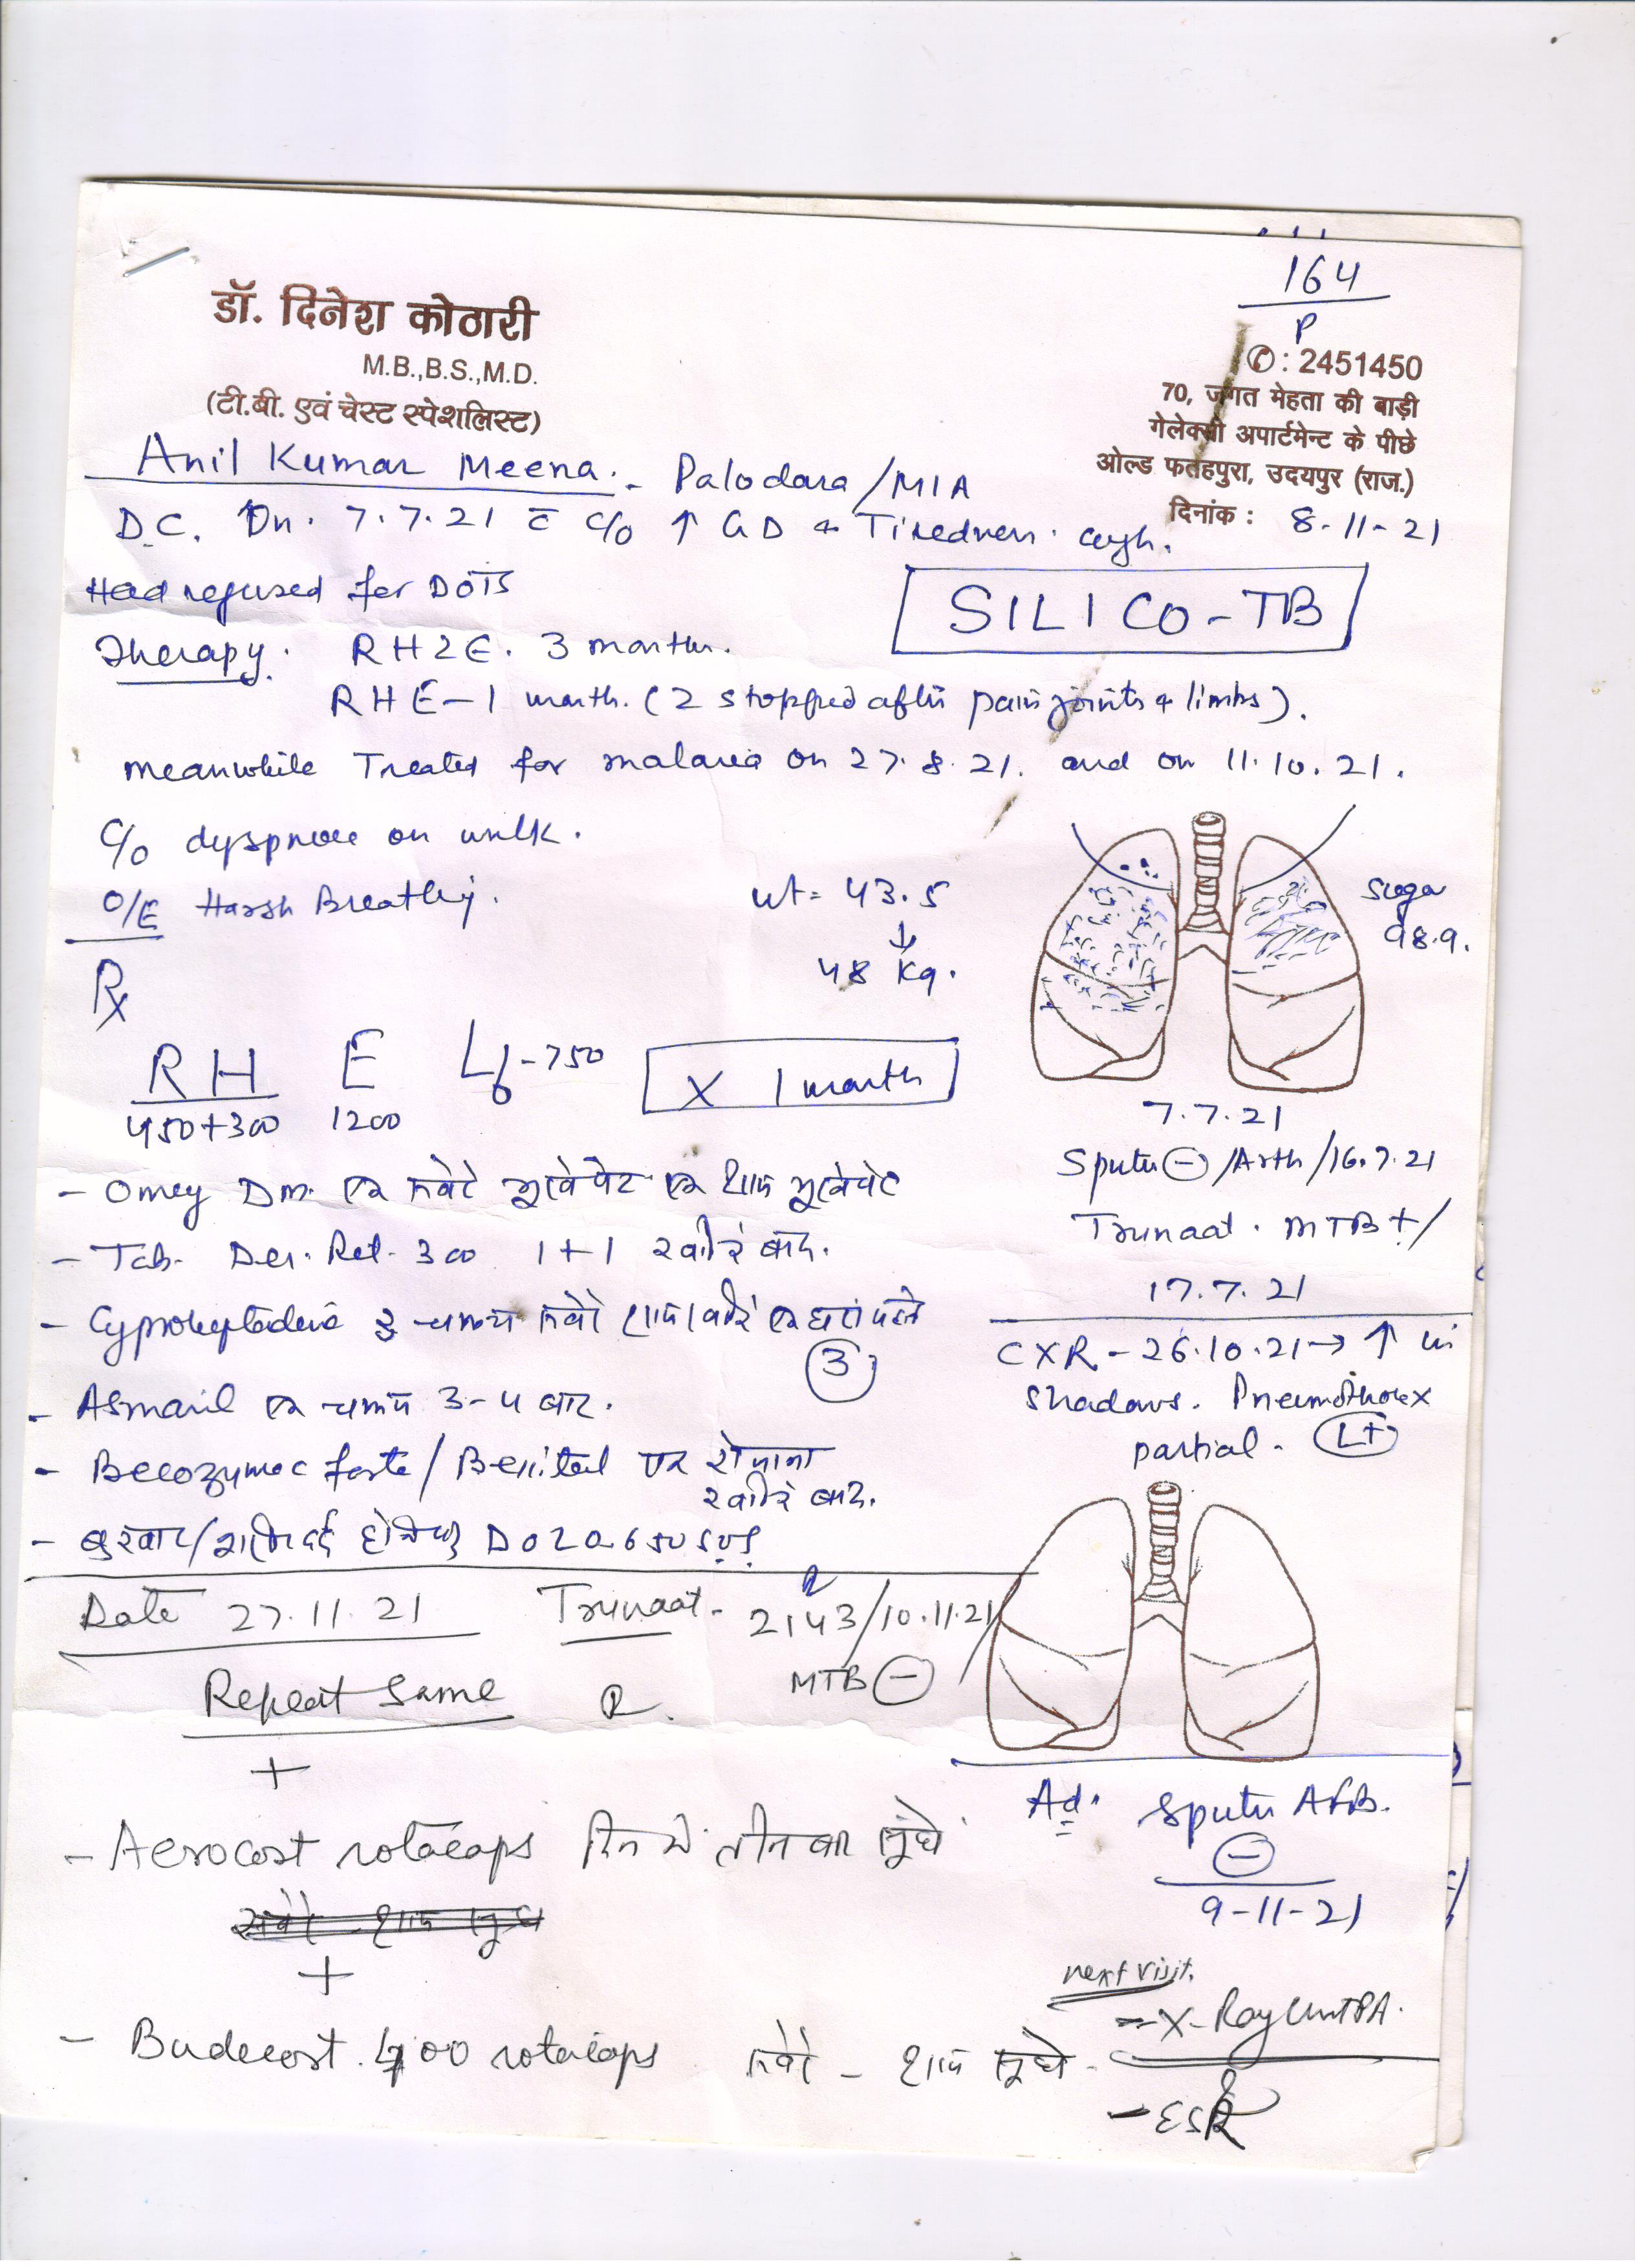 164
P
डॉ. दिनेश कोठारी
M.B.,B.S.,M.D.
(टी.बी. एवं चेस्ट स्पेशलिस्ट)
✆ : 2451450
70, जगत मेहता की बाड़ी
गेलेक्सी अपार्टमेन्ट के पीछे
ओल्ड फतहपुरा, उदयपुर (राज.)
दिनांक : 8-11-21
Anil Kumar Meena. - Palodara/MIA
D.C. On. 7.7.21 c̄ c/o ↑ GD + Tiredness. cough.
Had refused for DOTS
SILICO-TB
Therapy. RHZE. 3 months.
RHE - 1 month. (Z stopped after pain joints & limbs).
meanwhile Treated for malaria on 27.8.21. and on 11.10.21.
C/o dyspnoea on walk.
O/E Harsh Breathing.
wt = 43.5
↓
48 Kg.
Sugar
98.9.
Rx
RH E Lf - 750
450+300 1200
X 1 month
7.7.21
Sputum ⊖ /Arth/16.7.21
Trunaat. MTB+/
17.7.21
- Omey Dm. एक सवेरे भूखे पेट एक शाम भूखे पेट
- Tab. Der. Ret. 300 1+1 खाने के बाद.
- Cyproheptadine 2 चम्मच सवेरे शाम
3
- Asmanil एक चम्मच 3-4 बार.
- Becozyme c forte / एक रोजाना
खाने के बाद.
- बुखार/ दर्द होने पर DOLO 650 SOS
CXR - 26.10.21 → ↑ in
shadows. Pneumothorax
partial. Lt
Date 27.11.21 Trunaat - 2143/10.11.21/
MTB ⊖
Repeat Same R
+
- Aerocort rotacaps दिन में तीन बार सूंघे
सवेरे - शाम सूंघे
+
- Budecort 400 rotacaps सवेरे - शाम सूंघे
Ad. Sputum AFB.
⊖
9-11-21
next visit.
- X-Ray Chest PA.
- ESR